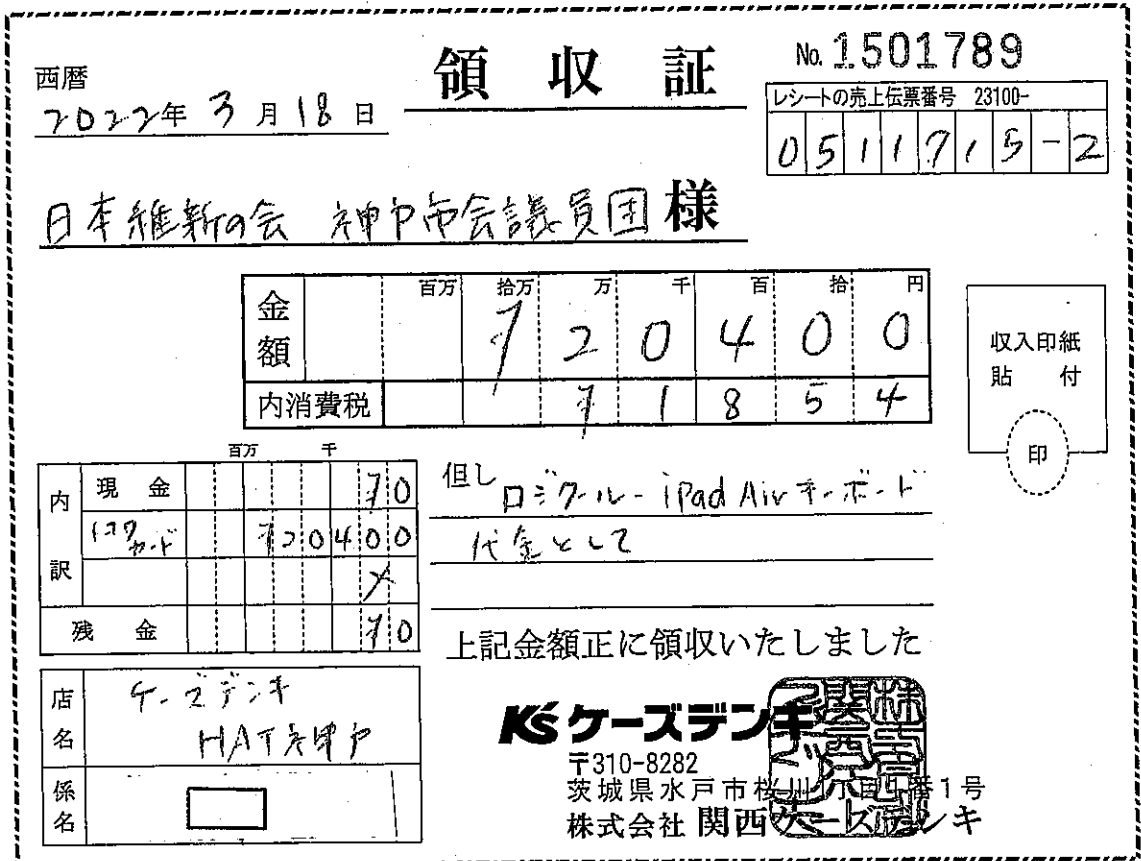 領収証
No. 1501789
西暦
2022年 3月18日
レシートの売上伝票番号 23100-
0511715-2
日本維新の会 神戸市会議員団 様
百万 拾万 万 千 百 拾 円
金額 ¥20400
内消費税 ¥1854
収入印紙
貼 付
印
百万 千
内訳
現金 ¥0
カード ¥20400
残金 ¥0
但し ロジクール-iPad Airキーボード
代金として
上記金額正に領収いたしました
店名 ケーズデンキ
HAT神戸
係名
K's ケーズデンキ
〒310-8282
茨城県水戸市桜川1丁目1番1号
株式会社 関西ケーズデンキ